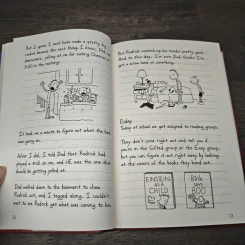 But I guess I must have made a pretty big
racket because the next thing I knew, Dad was
downstairs, yelling at me for eating Cheerios at
3:00 in the morning.
It took me a minute to figure out what the heck
was going on.
After I did, I told Dad that Rodrick had
played a trick on me, and HE was the one
should be getting yelled at.
Dad walked down to the basement to chew
Rodrick out, and I tagged along. I couldn't
wait to see Rodrick get what was coming to him.
12
But Rodrick covered up his tracks pretty good.
And to this day, I'm sure Dad thinks I've
got a screw loose or something.
Friday
Today at school we got assigned to reading groups.
They don't come right out and tell you if
you're in the Gifted group or the Easy group,
but you can figure it out right away by looking
at the covers of the books they hand out.
EINSTEIN
AS A
CHILD
Bink
says
BOO
13